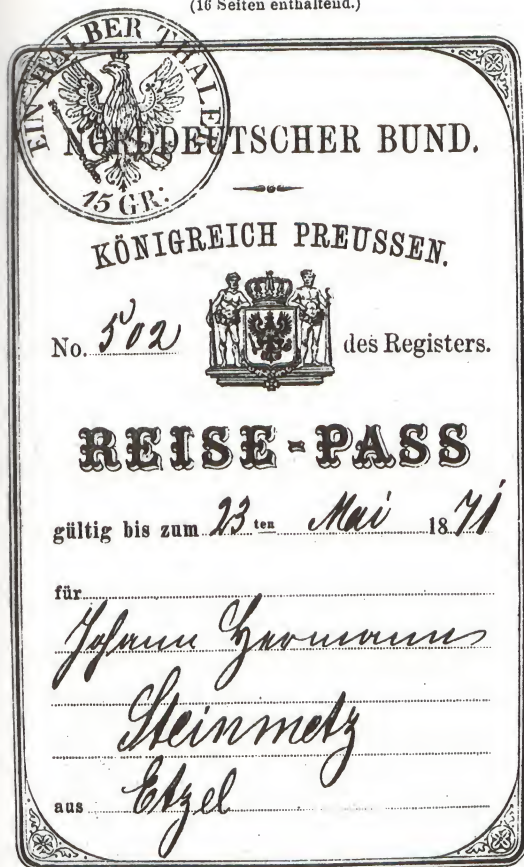 (16 Seiten enthaltend.)
EIN HALBER THALER
15 GR:
NORDDEUTSCHER BUND.
KÖNIGREICH PREUSSEN.
No. 502 des Registers.
REISE-PASS
gültig bis zum 23 ten Mai 1871
für
Johann Hermann
Steinmetz
aus Etzel